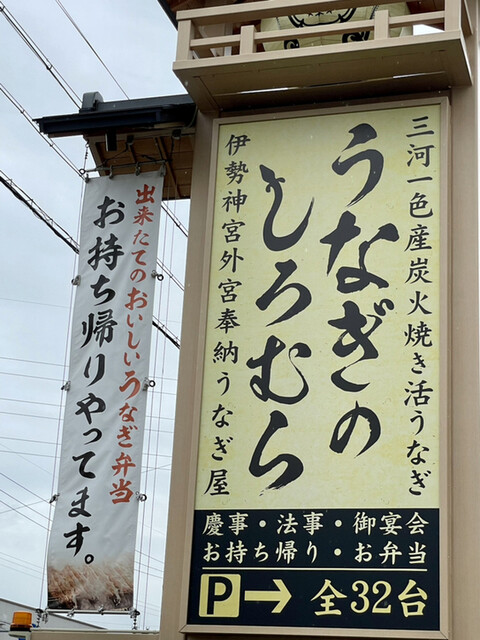 三河一色産炭火焼き活うなぎ
うなぎの
しろむら
伊勢神宮外宮奉納うなぎ屋
慶事・法事・御宴会
お持ち帰り・お弁当
P→全32台
出来たてのおいしいうなぎ弁当
お持ち帰りやってます。